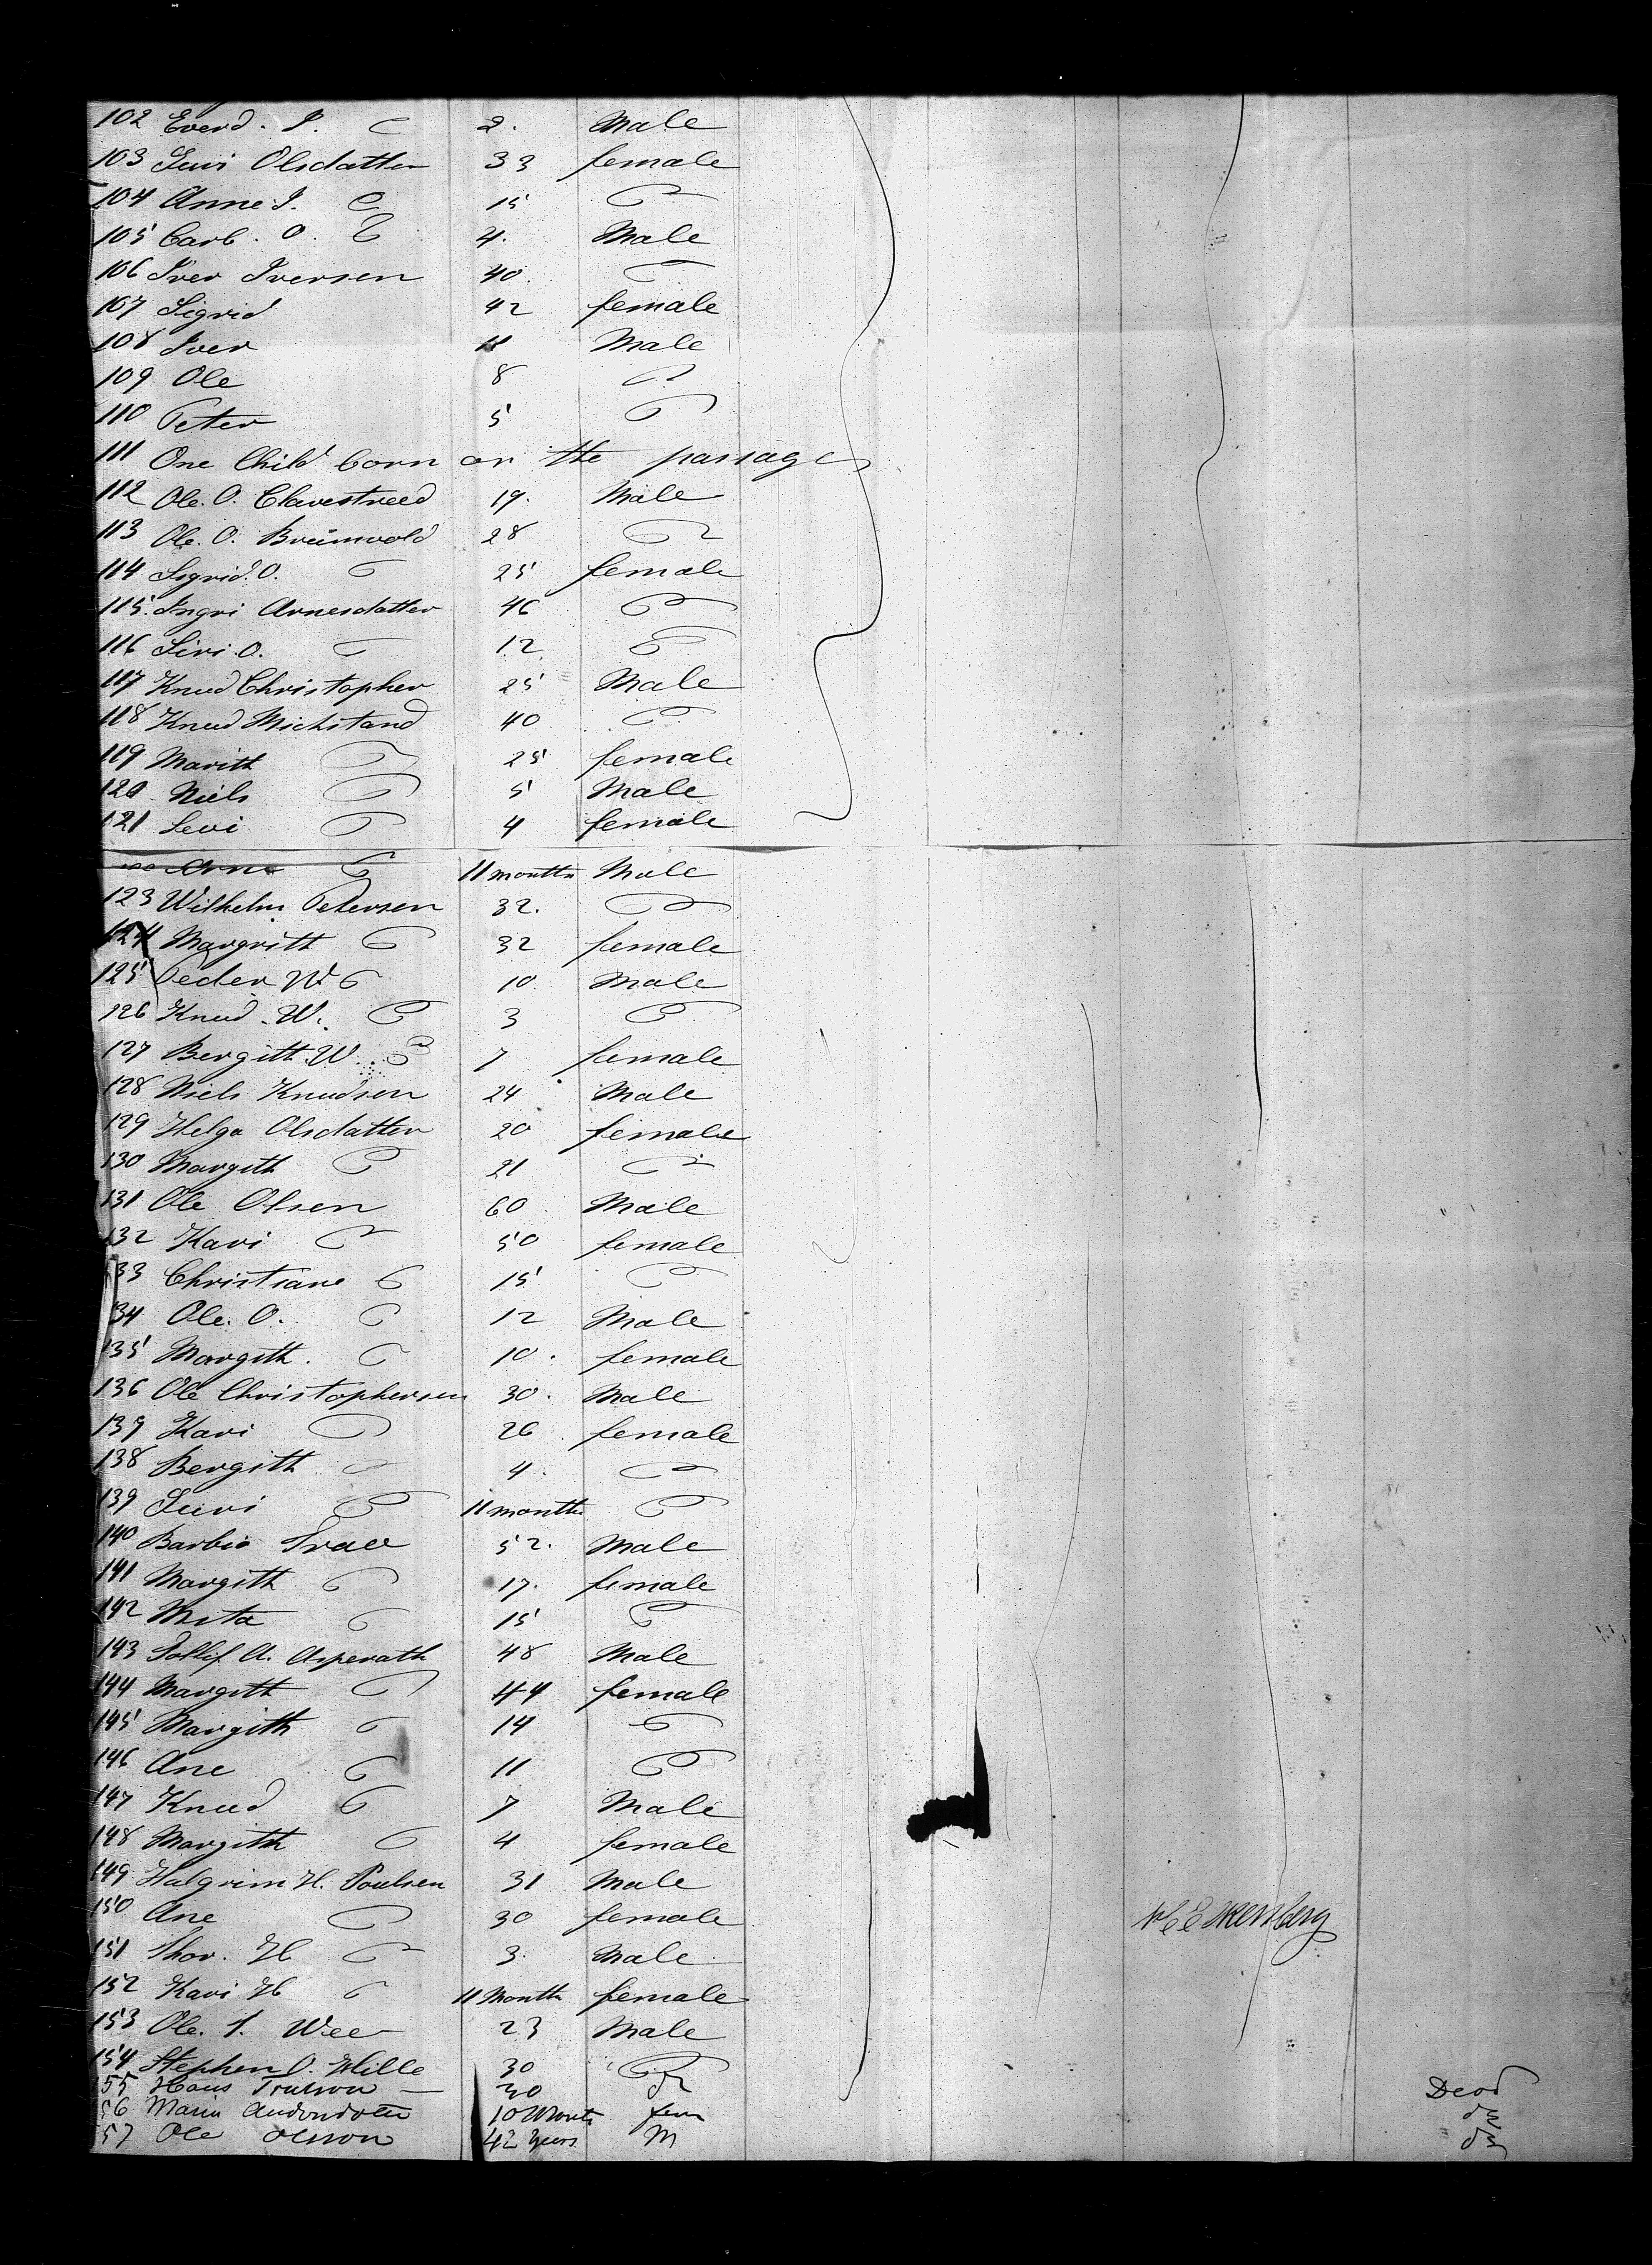 102 Everd. I. 2. Male
103 Juri Olsdatter 33 female
104 Anne I. 15
105 Carl. O. 4. Male
106 Iver Iversen 40.
107 Sigrid 42 female
108 Iver 11 Male
109 Ole 8
110 Peter 5
111 One Child born on the passage
112 Ole. O. Clavestreed 19. Male
113 Ole. O. Breumvold 28
114 Sigrid. O. 25 female
115. Ingri Arnesdatter 46
116 Siri. O. 12
117 Knud Christopher 25 Male
118 Knud Michstand 40
119 Marith 25 female
120 Niels 5 Male
121 Sevi 4 female
Arne 11 months Male
123 Wilhelm Petersen 32.
124 Margritt 32 female
125 Peder W 10. Male
126 Knud. W. 3
127 Bergitt. W. 7 female
128 Niels Knudsen 24 Male
129 Helga Olsdatter 20 female
130 Margith 21
131 Ole Olsen 60 Male
132 Kari 50 female
133 Christiane 15
134 Ole. O. 12 Male
135 Margith. 10. female
136 Ole Christophersen 30. Male
137 Kari 26 female
138 Bergith 4.
139 Juri 11 months
140 Barbio 52. Male
141 Margith 17. female
142 Mita 15
143 Tollif A. Asperath 48 Male
144 Margith 44 female
145 Margith 14
146 Ane 11
147 Knud 7 Male
148 Margith 4 female
149 Halgrim H. Poulsen 31 Male
150 Ane 30 female
151 Thor. H 3. Male
152 Kari H 11 Month female
153 Ole. S. Wee 23 Male
154 Stephen O. Hille 30
155 Hans 30 Dead
56 Maria 10 Month fem do
57 Ole Olsson 42 Years M do